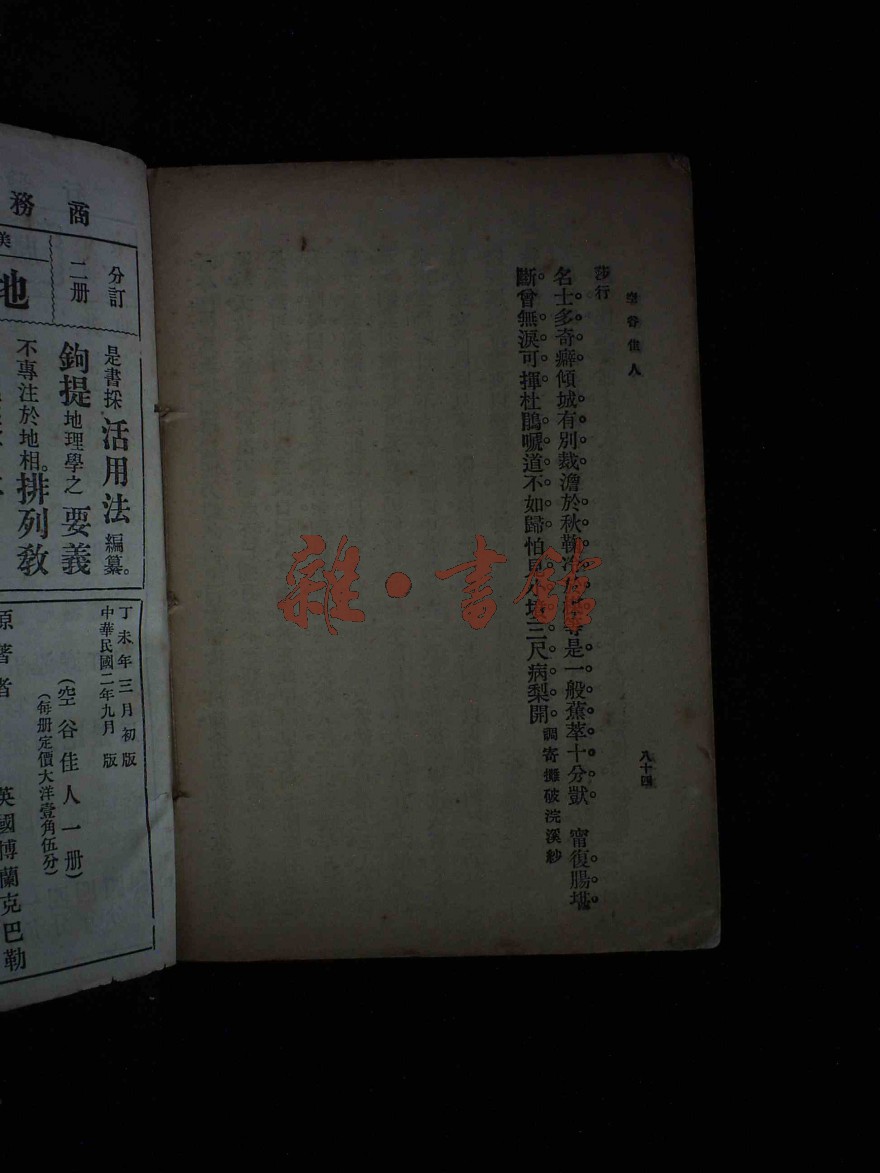 空谷佳人
八十四
莎行
名士多奇癖傾城有別裁澹於秋 是一般蕉萃十分獃　甯復腸堪
斷曾無淚可揮杜鵑嗁道不如歸怕 三尺病梨開 調寄攤破浣溪紗
雜·書館
商務
分訂二册
地
是書採活用法編纂。
鉤提地理學之要義
不專注於地相。排列敎
丁未年三月初版
中華民國二年九月 版
(空谷佳人一册)
(每册定價大洋壹角伍分)
原著者 英國博蘭克巴勒